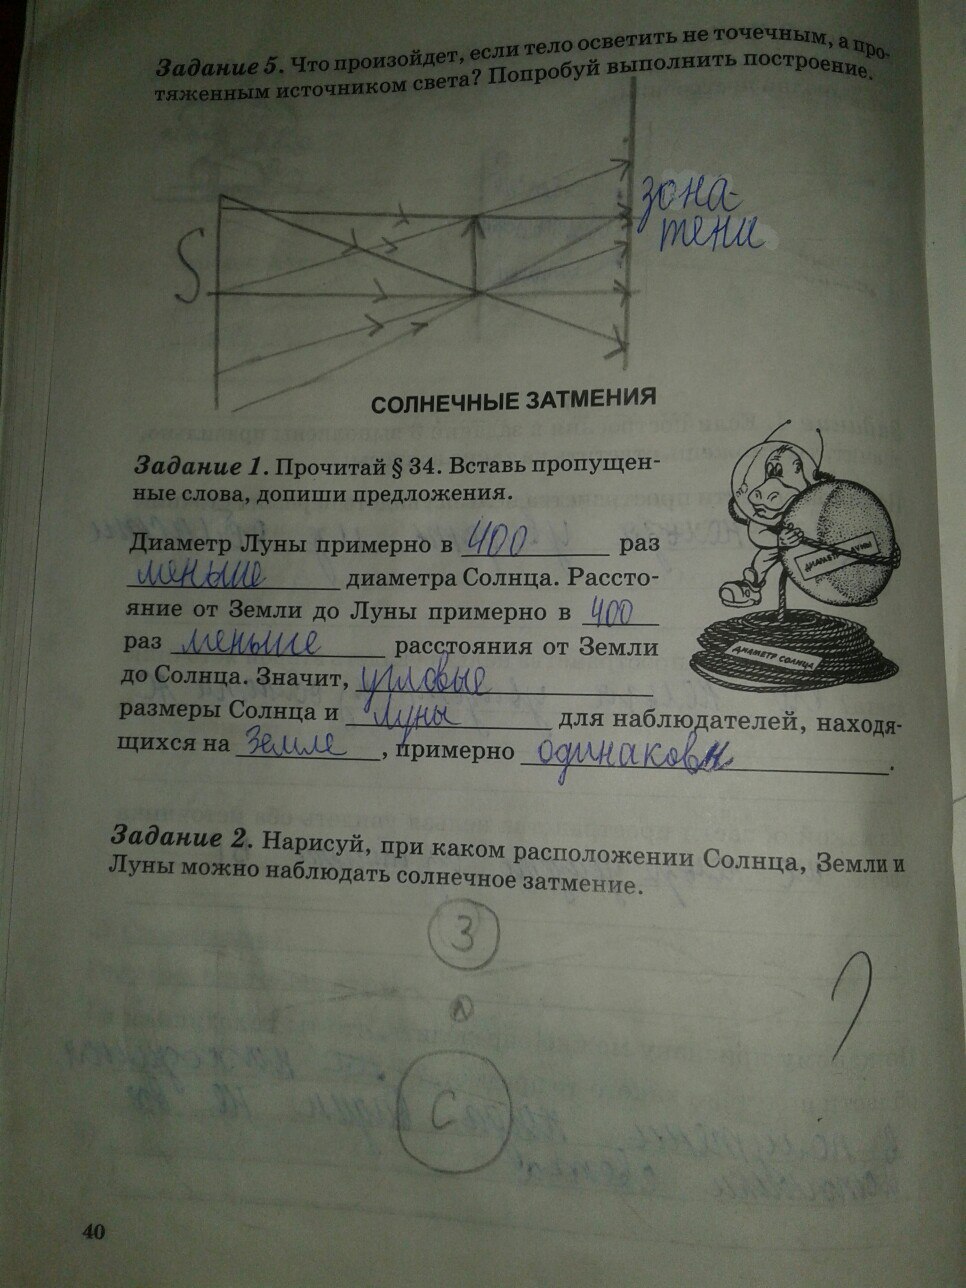 Задание 5. Что произойдет, если тело осветить не точечным, а про-
тяженным источником света? Попробуй выполнить построение.
S
зона
тени
СОЛНЕЧНЫЕ ЗАТМЕНИЯ
Задание 1. Прочитай § 34. Вставь пропущен-
ные слова, допиши предложения.
Диаметр Луны примерно в 400 раз
меньше диаметра Солнца. Рассто-
яние от Земли до Луны примерно в 400
раз меньше расстояния от Земли
до Солнца. Значит, угловые
размеры Солнца и Луны для наблюдателей, находя-
щихся на Земле, примерно одинаковы.
ДИАМЕТР ЛУНЫ
ДИАМЕТР СОЛНЦА
Задание 2. Нарисуй, при каком расположении Солнца, Земли и
Луны можно наблюдать солнечное затмение.
З
Л
С
40